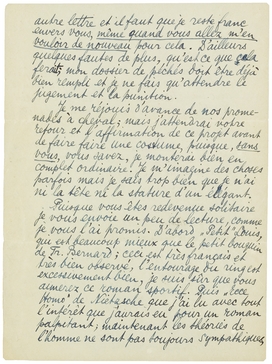 autre lettre et il faut que je reste franc
envers vous, même quand vous allez m'en
vouloir de nouveau pour cela. D'ailleurs
quelques fautes de plus, qu'est ce que cela
ferait; mon dossier de péchés doit être déjà
bien rempli et je ne fais qu'attendre le
jugement et la punition.
Je me réjouis d'avance de nos prome-
nades à cheval; mais j'attendrai votre
retour et l'affirmation de ce projet avant
de faire faire une costume, puisque, sans
vous, vous savez, je monterai bien en
complet ordinaire. Je m'imagine des choses
parfois mais je sais trop bien que je n'ai
ni la tête ni la stature d'un élégant.
Puisque vous êtes redevenue solitaire
je vous envoie un peu de lecture, comme
je vous l'ai promis. D'abord "Petit Louis",
qui est beaucoup mieux que le petit bouquin
de Tr. Bernard; ceci est très français et
très bien observé, l'entourage du ring est
excessivement bien, je suis sûr que vous
aimerez ce roman sportif. Puis "Ecce
Homo" de Nietzsche que j'ai lu avec tout
l'intérêt que j'aurais eu pour un roman
palpitant, maintenant les théories de
l'homme ne sont pas toujours sympathiques,